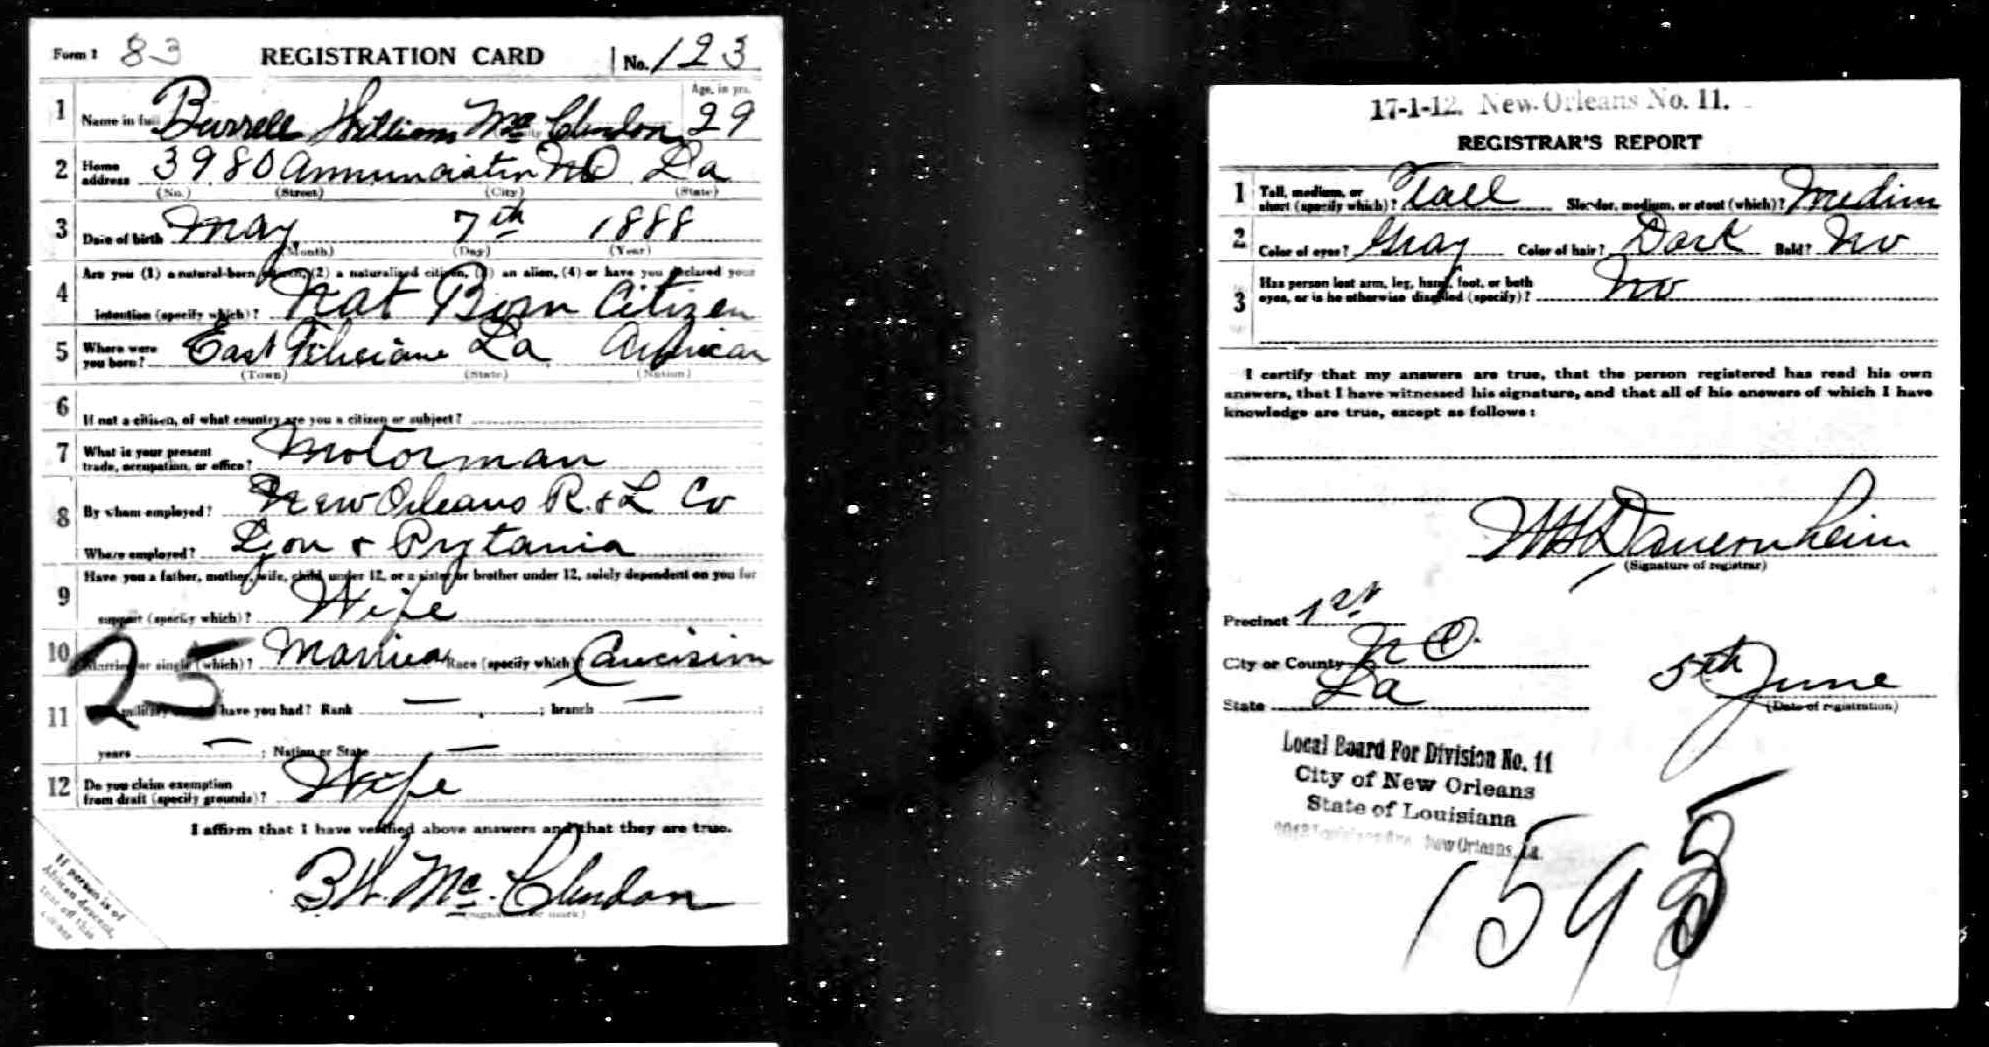 Form 1 83 REGISTRATION CARD No. 123
1 Name in full Burrell William Mc Clendon Age, in yrs. 29
2 Home address 3980 Annunciation NO La
(No.) (Street) (City) (State)
3 Date of birth May 7th 1888
(Month) (Day) (Year)
4 Are you (1) a natural-born citizen, (2) a naturalized citizen, (3) an alien, (4) or have you declared your
intention (specify which)? Nat Born Citizen
5 Where were you born? East Feliciana La American
(Town) (State) (Nation)
6 If not a citizen, of what country are you a citizen or subject?
7 What is your present trade, occupation, or office? Motorman
8 By whom employed? New Orleans R. & L Co
Where employed? Lyon & Prytania
9 Have you a father, mother, wife, child under 12, or a sister or brother under 12, solely dependent on you for
support (specify which)? Wife
10 Married or single (which)? Married Race (specify which)?
25
11 military have you had? Rank — ; branch —
years — ; Nation or State —
12 Do you claim exemption from draft (specify grounds)? Wife
I affirm that I have verified above answers and that they are true.
B W. Mc. Clendon
(Signature or mark)
If person is of
African descent,
tear off this
corner
17-1-12. New Orleans No. 11.
REGISTRAR'S REPORT
1 Tall, medium, or short (specify which)? Tall Slender, medium, or stout (which)? Medium
2 Color of eyes? Gray Color of hair? Dark Bald? No
3 Has person lost arm, leg, hand, foot, or both eyes, or is he otherwise disabled (specify)? No
I certify that my answers are true, that the person registered has read his own
answers, that I have witnessed his signature, and that all of his answers of which I have
knowledge are true, except as follows:
Dauernheim
(Signature of registrar)
Precinct 1st
City or County N O.
State La
5th June
(Date of registration)
Local Board For Division No. 11
City of New Orleans
State of Louisiana
New Orleans, La.
1595